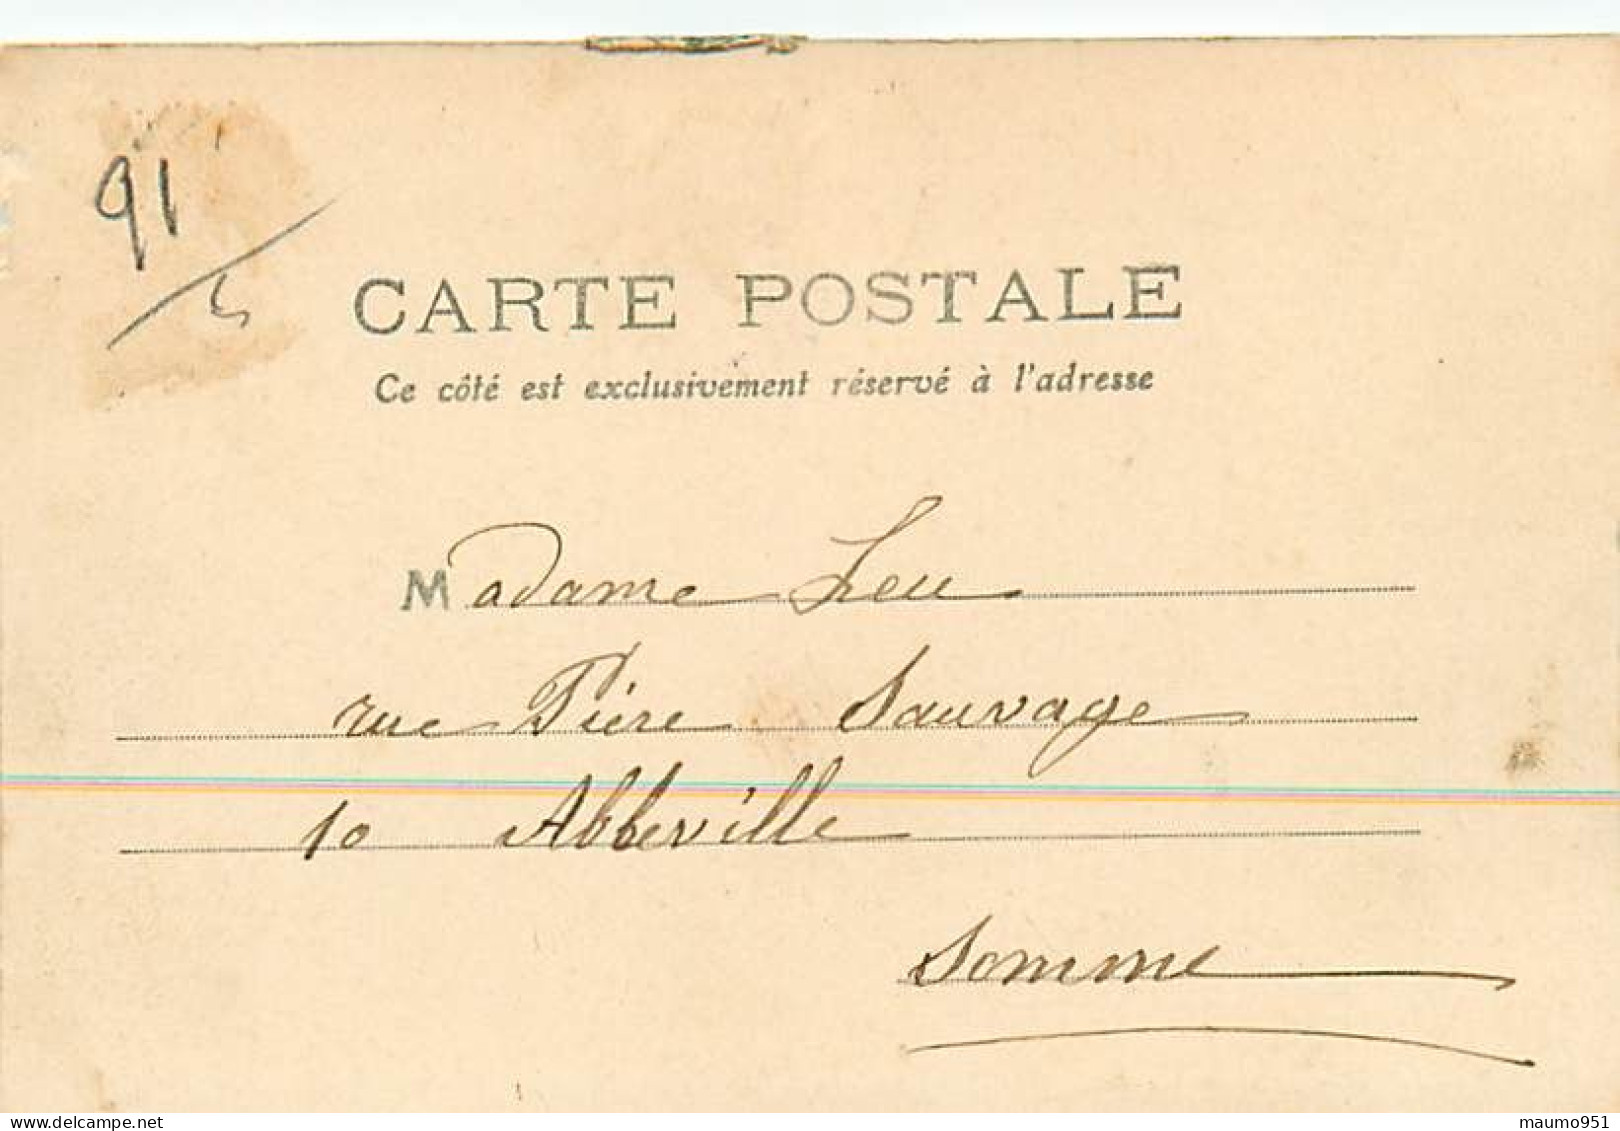 91
5
CARTE POSTALE
Ce côté est exclusivement réservé à l'adresse
Madame Leu
rue Pière Sauvage
10 Abbeville
Somme
maumo951